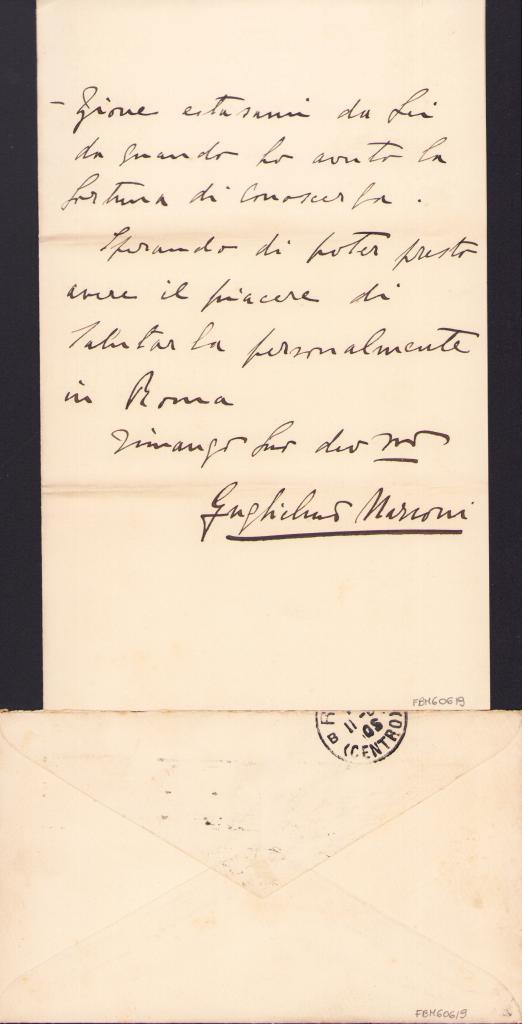 -zione estasami da Lei
da quando ho avuto la
fortuna di conoscerla.
Sperando di poter presto
avere il piacere di
salutarla personalmente
in Roma
rimango Suo devmo
Guglielmo Marconi
FBM606/9
R
B 11
05
(CENTRO)
FBM606/9